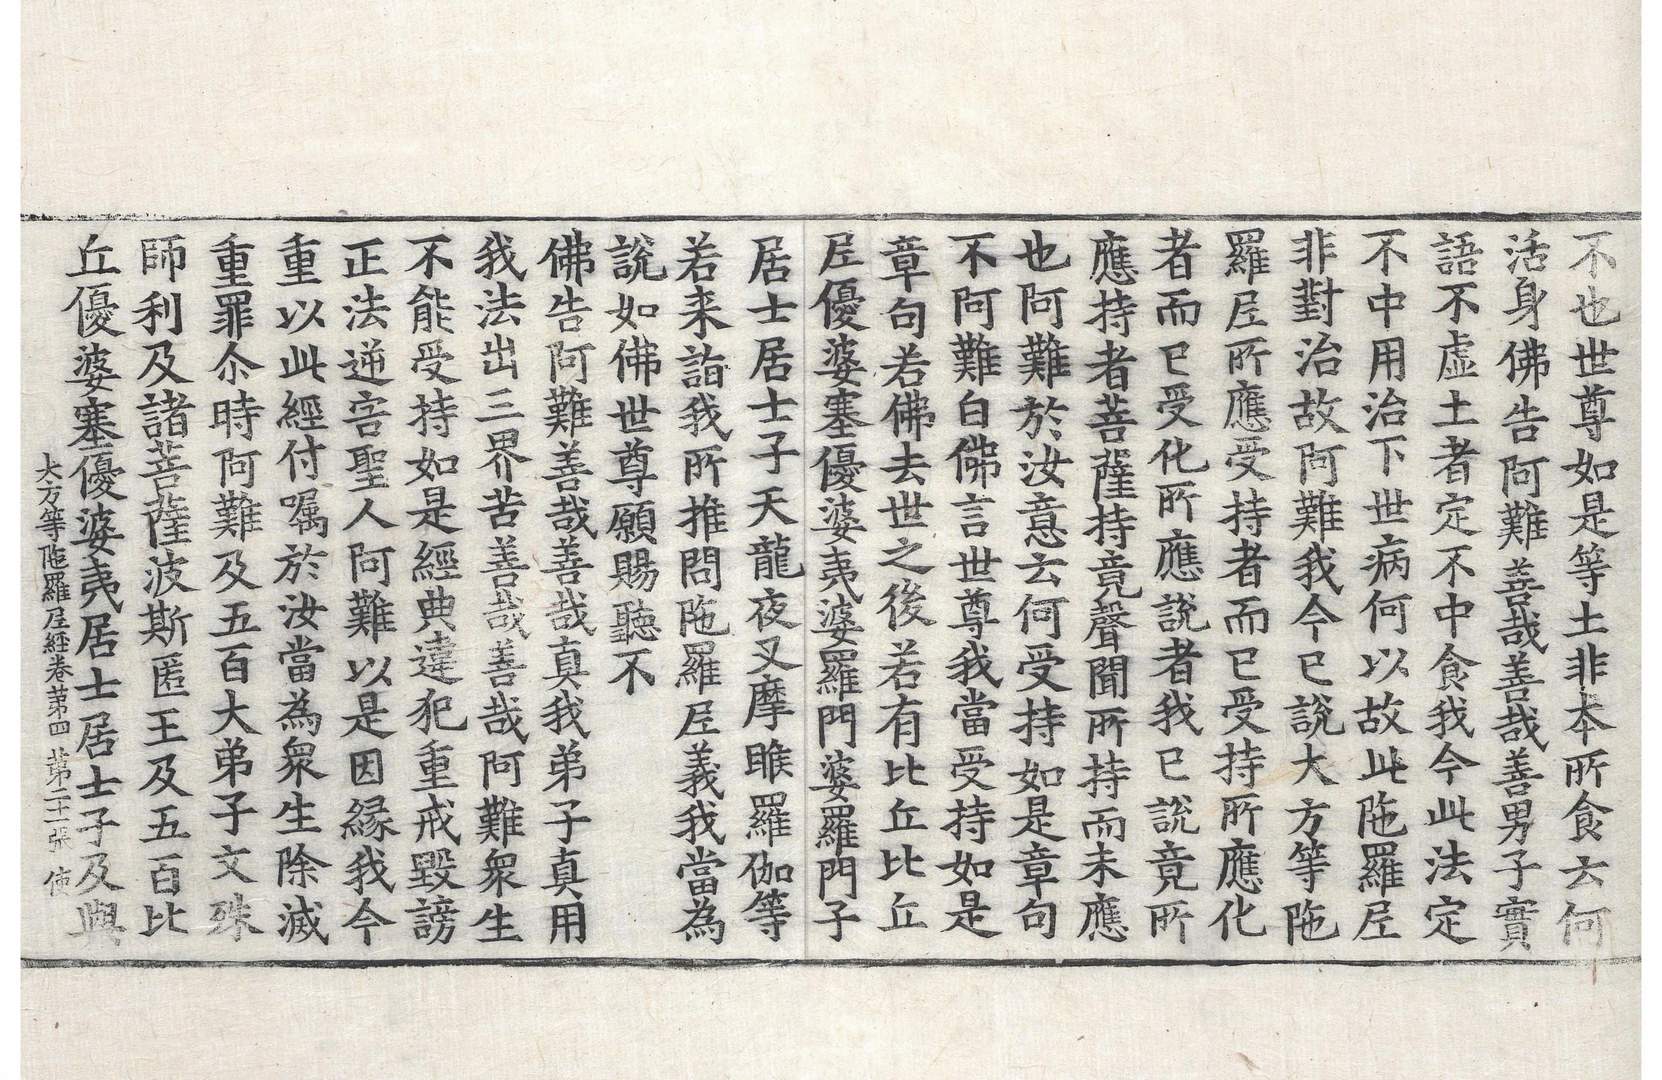 不也世尊如是等土非本所食云何
活身佛告阿難善哉善哉善男子實
語不虛土者定不中食我今此法定
不中用治下世病何以故此陁羅尼
非對治故阿難我今已說大方等陁
羅尼所應受持者而已受持所應化
者而已受化所應說者我已說竟所
應持者菩薩持竟聲聞所持而未應
也阿難於汝意云何受持如是章句
不阿難白佛言世尊我當受持如是
章句若佛去世之後若有比丘比丘
尼優婆塞優婆夷婆羅門婆羅門子
居士居士子天龍夜叉摩睺羅伽等
若来詣我所推問陁羅尼義我當為
說如佛世尊願賜聽不
佛告阿難善哉善哉真我弟子真用
我法出三界苦善哉善哉阿難衆生
不能受持如是經典違犯重戒毀謗
正法逆害聖人阿難以是因緣我今
重以此經付囑於汝當為衆生除滅
重罪尒時阿難及五百大弟子文殊
師利及諸菩薩波斯匿王及五百比
丘優婆塞優婆夷居士居士子及與
大方等陁羅尼經卷第四 第二十張 使